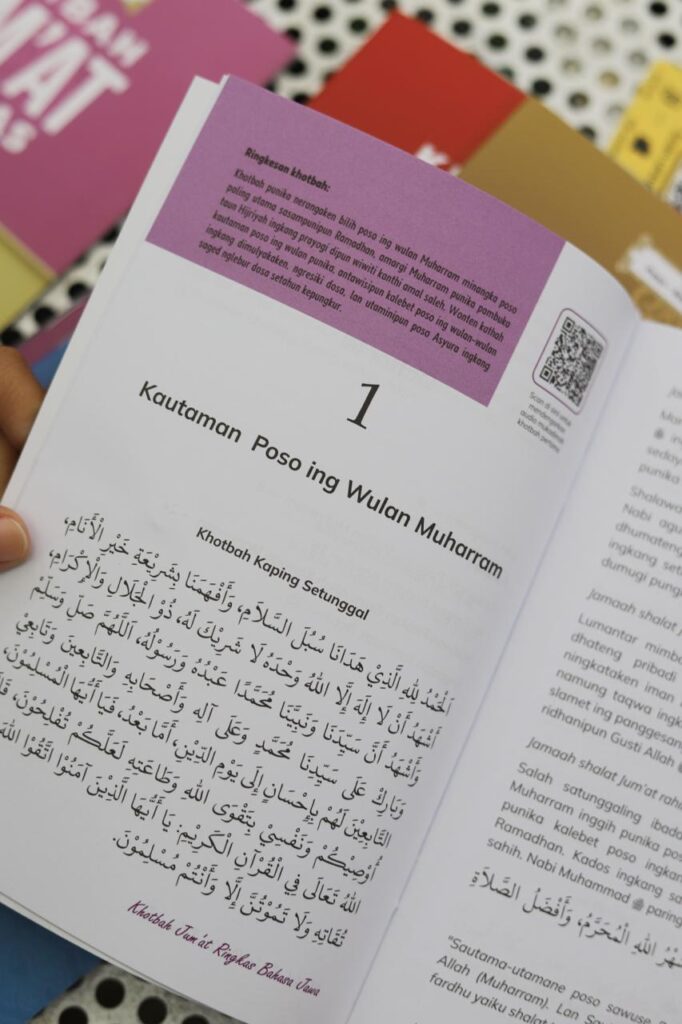 BAH
M'AT
AS
Ringkesan khotbah:
Khotbah punika nerangaken bilih poso ing wulan Muharram minangka poso
paling utama sasampunipun Ramadhan, amargi Muharram punika pambuka
taun Hijriyah ingkang prayogi dipun wiwiti kanthi amal saleh. Wonten kathah
kautaman poso ing wulan punika, antawisipun kalebet poso ing wulan-wulan
ingkang dimulyakaken, ngresiki dosa, lan utaminipun poso Asyura ingkang
saged nglebur dosa setahun kepungkur.
Scan di sini untuk
mendengarkan
khotbah
1
Kautaman Poso ing Wulan Muharram
Khotbah Kaping Setunggal
الْحَمْدُ لِلّٰهِ الَّذِيْ هَدَانَا سُبُلَ السَّلَامِ، وَأَفْهَمَنَا بِشَرِيْعَةِ خَيْرِ الْأَنَامِ،
أَشْهَدُ أَنْ لَا إِلٰهَ إِلَّا اللهُ وَحْدَهُ لَا شَرِيْكَ لَهُ، ذُو الْجَلَالِ وَالْإِكْرَامِ،
وَأَشْهَدُ أَنَّ سَيِّدَنَا وَنَبِيَّنَا مُحَمَّدًا عَبْدُهُ وَرَسُوْلُهُ، اَللّٰهُمَّ صَلِّ وَسَلِّمْ
وَبَارِكْ عَلَى سَيِّدِنَا مُحَمَّدٍ وَعَلَى آلِهِ وَأَصْحَابِهِ وَالتَّابِعِينَ وَتَابِعِيْ
التَّابِعِيْنَ لَهُمْ بِإِحْسَانٍ إِلَى يَوْمِ الدِّيْنِ، أَمَّا بَعْدُ، فَيَا أَيُّهَا الْمُسْلِمُوْنَ،
أُوْصِيْكُمْ وَنَفْسِيْ بِتَقْوَى اللهِ وَطَاعَتِهِ لَعَلَّكُمْ تُفْلِحُوْنَ،
اللهُ تَعَالَى فِي الْقُرْآنِ الْكَرِيْمِ: يَا أَيُّهَا الَّذِيْنَ آمَنُوْا اتَّقُوْا اللهَ
تُقَاتِهِ وَلَا تَمُوْتُنَّ إِلَّا وَأَنْتُمْ مُسْلِمُوْنَ.
Khotbah Jum'at Ringkas Bahasa Jawa
punika
Shalawa
Nabi agu
dhumateng
ingkang set
dumugi pung
Jamaah shalat J
Lumantar mimba
dhateng pribadi
ningkataken iman
namung taqwa ingk
slamet ing panggesan
ridhanipun Gusti Allah
Jamaah shalat Jum'at rahi
Salah satunggaling ibada
Muharram inggih punika pos
punika kalebet poso ingkan
Ramadhan. Kados ingkang sa
sahih, Nabi Muhammad ﷺ paring
شَهْرُ اللهِ الْمُحَرَّمُ، وَأَفْضَلُ الصَّلَاةِ
"Sautama-utamane poso sawuse
Allah (Muharram). Lan Sa
fardhu yaiku shalat